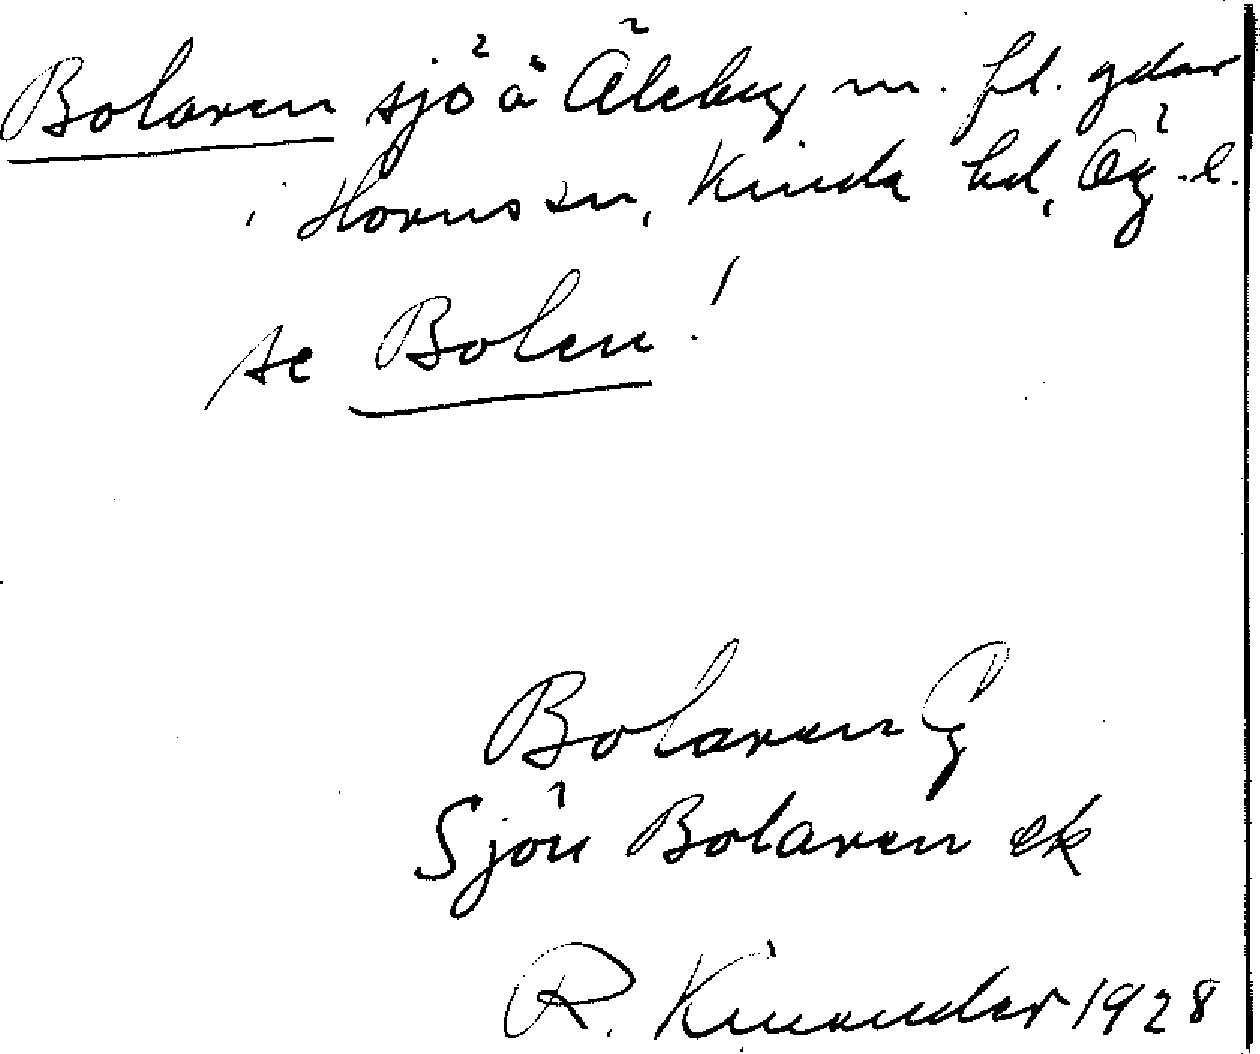 Bolaren sjö å Åleby m. fl. gdar
i Horns sn, Kinda hd, Ög. l.
se Bolen!
Bolaren G
Sjön Bolaren ek
R. Kinander 1928